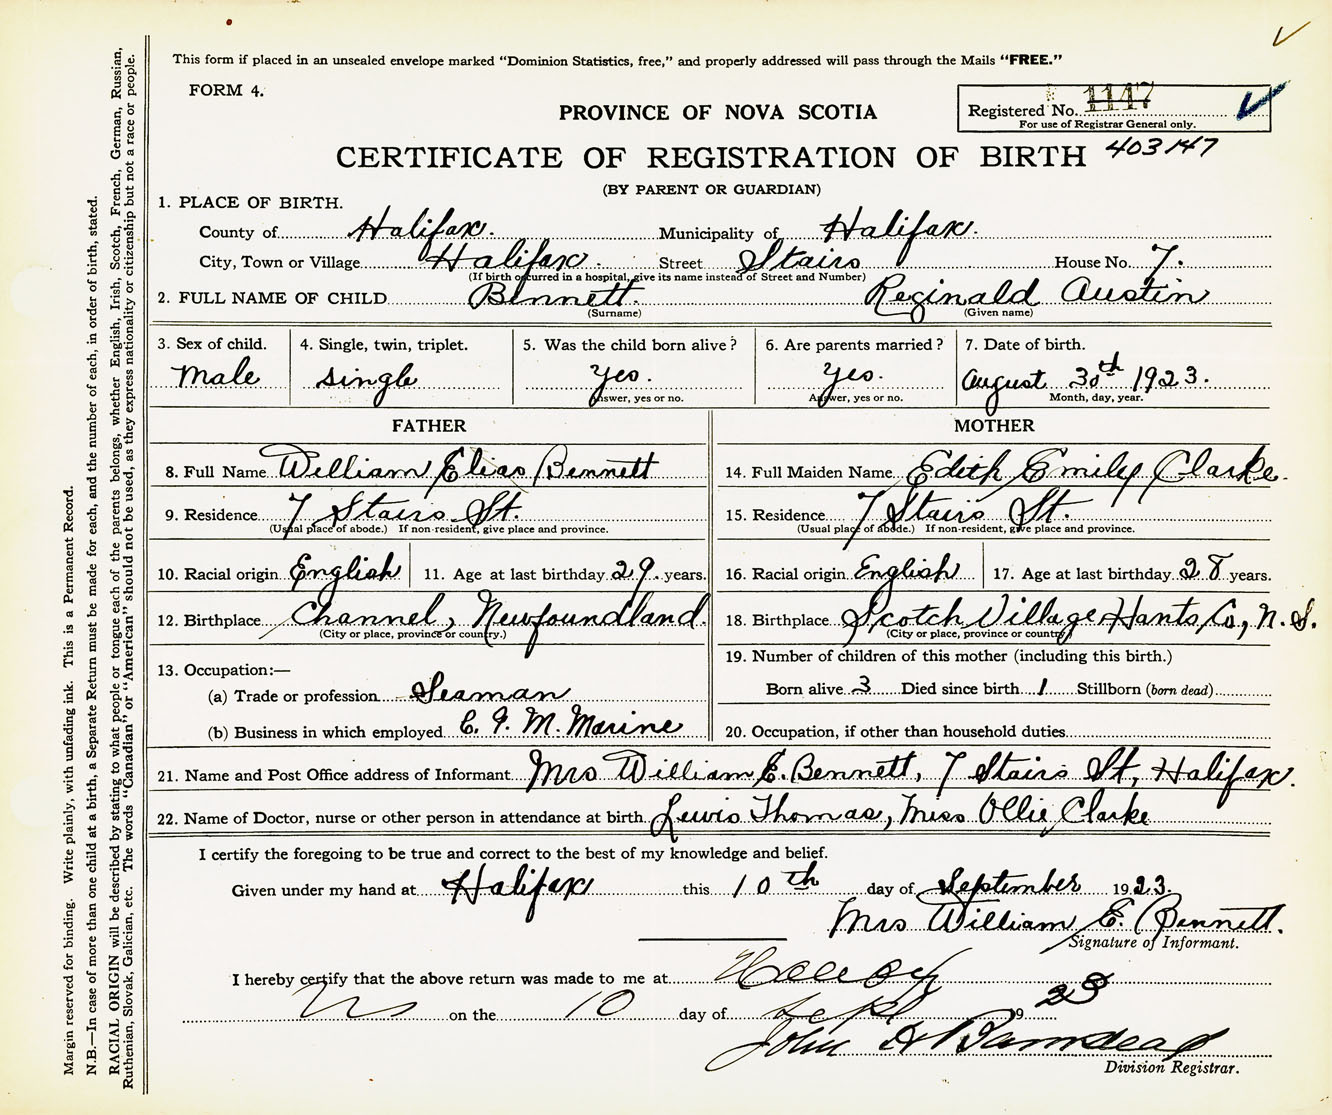 This form if placed in an unsealed envelope marked “Dominion Statistics, free,” and properly addressed will pass through the Mails “FREE.”
FORM 4.
PROVINCE OF NOVA SCOTIA
Registered No. 1147
For use of Registrar General only.
CERTIFICATE OF REGISTRATION OF BIRTH 403147
(BY PARENT OR GUARDIAN)
1. PLACE OF BIRTH.
County of Halifax. Municipality of Halifax.
City, Town or Village Halifax. Street Stairs House No. 7.
(If birth occurred in a hospital, give its name instead of Street and Number)
2. FULL NAME OF CHILD Bennett. Reginald Austin
(Surname) (Given name)
3. Sex of child. 4. Single, twin, triplet. 5. Was the child born alive? 6. Are parents married? 7. Date of birth.
Male single yes. yes. August 30th 1923.
Answer, yes or no. Answer, yes or no. Month, day, year.
FATHER MOTHER
8. Full Name William Elias Bennett 14. Full Maiden Name Edith Emily Clarke.
9. Residence 7 Stairs St. 15. Residence 7 Stairs St.
(Usual place of abode.) If non-resident, give place and province. (Usual place of abode.) If non-resident, give place and province.
10. Racial origin English 11. Age at last birthday 29 years. 16. Racial origin English 17. Age at last birthday 28 years.
12. Birthplace Channel, Newfoundland. 18. Birthplace Scotch Village Hants Co., N. S.
(City or place, province or country.) (City or place, province or country)
13. Occupation:— 19. Number of children of this mother (including this birth.)
(a) Trade or profession Seaman Born alive 3 Died since birth 1 Stillborn (born dead)
(b) Business in which employed C. G. M. Marine 20. Occupation, if other than household duties
21. Name and Post Office address of Informant Mrs William E. Bennett, 7 Stairs St, Halifax.
22. Name of Doctor, nurse or other person in attendance at birth Lewis Thomas, Miss Ollie Clarke
I certify the foregoing to be true and correct to the best of my knowledge and belief.
Given under my hand at Halifax this 10th day of September 1923.
Mrs William E. Bennett.
Signature of Informant.
I hereby certify that the above return was made to me at
NS on the 10 day of Sept 19 23
John A
Division Registrar.
Margin reserved for binding. Write plainly, with unfading ink. This is a Permanent Record.
N.B.—In case of more than one child at a birth, a Separate Return must be made for each, and the number of each, in order of birth, stated.
RACIAL ORIGIN will be described by stating to what people or tongue each of the parents belongs, whether English, Irish, Scotch, French, German, Russian,
Ruthenian, Slovak, Galician, etc. The words “Canadian” or “American” should not be used, as they express nationality or citizenship but not a race or people.